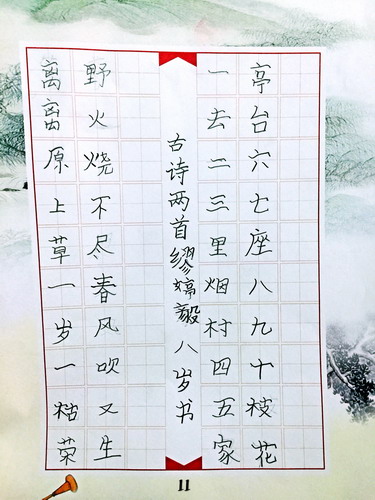 离离原上草一岁一枯荣
野火烧不尽春风吹又生
古诗两首缪婷毅八岁书
一去二三里烟村四五家
亭台六七座八九十枝花
11